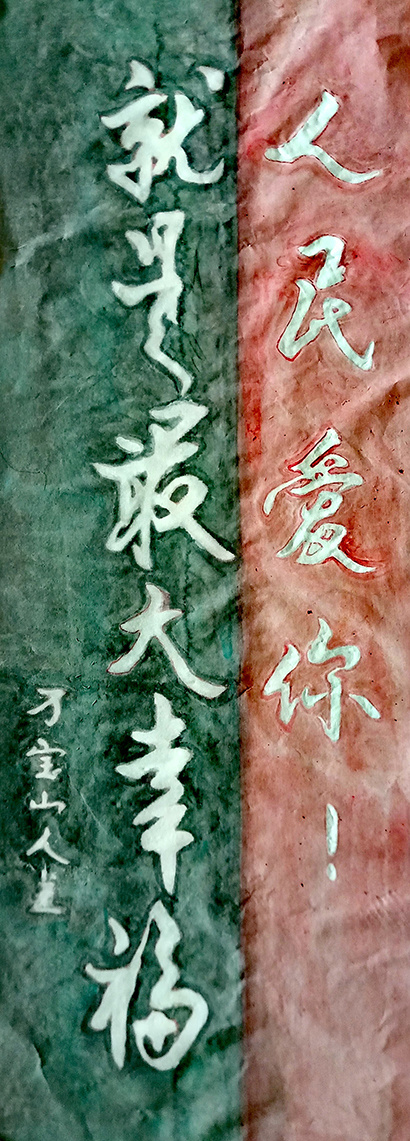 人民爱你！
就是最大幸福
刁宝山人生